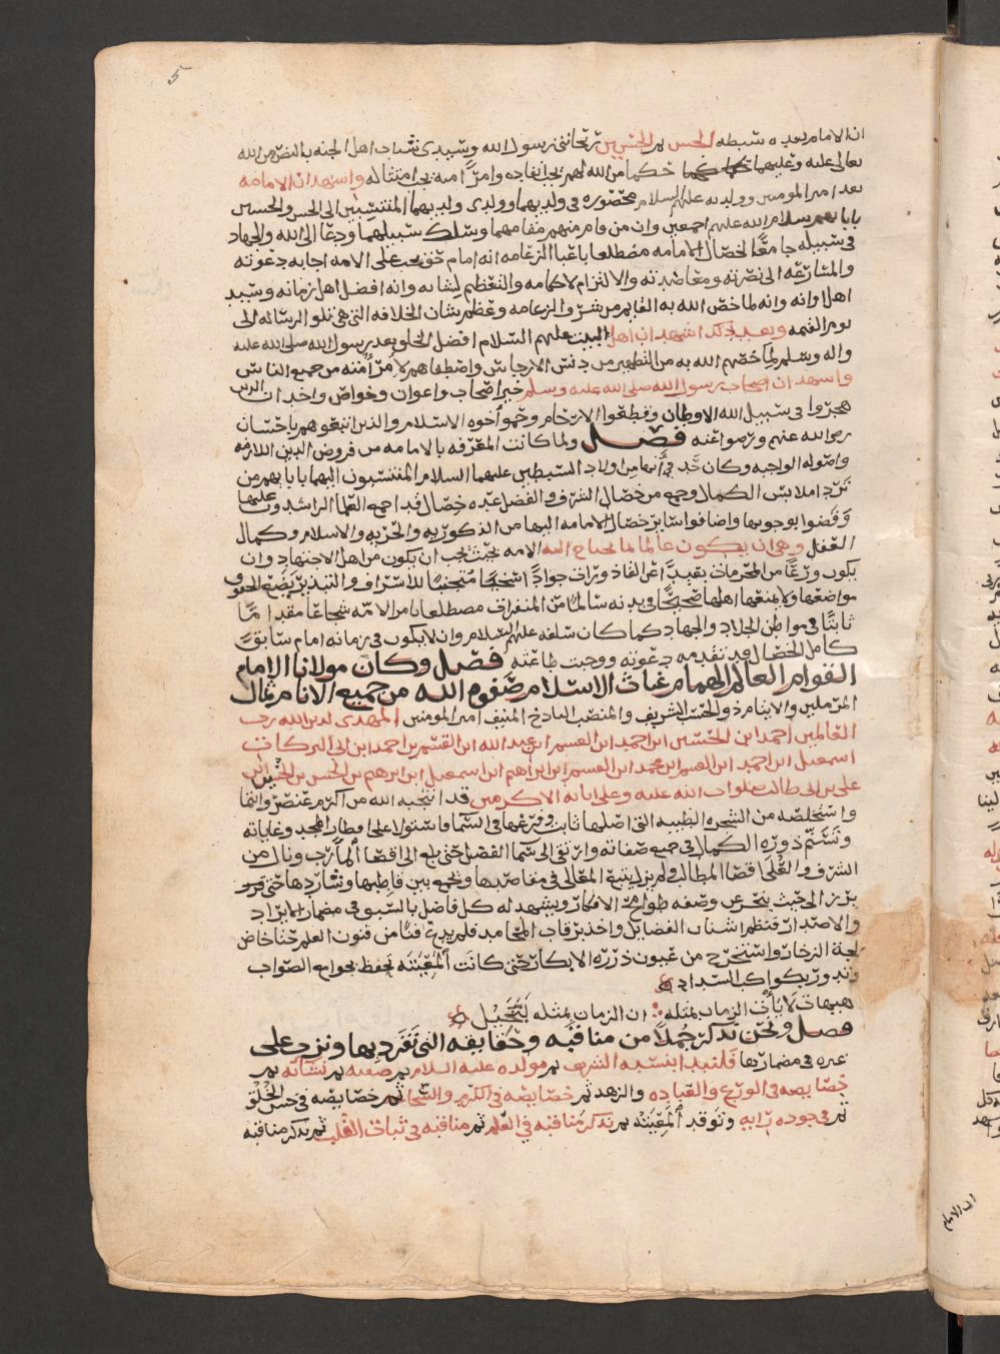 ان الامام بعده سبطه الحسن ثم الحسين ريحانتي رسول الله وسيدي شباب اهل الجنه بالنص من الله
تعالى عليه وعليهما حكما من الله لهم يجب انفاذه وامرًا منه يجب امتثاله واشهد ان الامامه
بعد امير المومنين وولديه عليهم السلام محصوره في ولديهما وولدي ولديهما المنتسبين الى الحسن والحسين
بابايهم سلام الله عليهم اجمعين وان من قام منهم مقامهما وسلك سبيلهما ودعا الى الله والجهاد
في سبيله جامعًا لخصال الامامه مضطلعا باعبا الزعامه انه امام حق يجب على الامه اجابه دعوته
والمسارعه الى نصرته ومعاضدته والالتزام لاحكامه والتعظيم لشانه وانه افضل اهل زمانه وسيد
اهل اوانه وانه لما خص الله به القايم من شرف الزعامه وعظم شان الخلافه التي هي تلو الرساله الى
يوم القيمه وبعد ذلك اشهد ان اهل البيت عليهم السلام افضل الخلق بعد رسول الله صلى الله عليه
واله وسلم لما خصهم الله به من التطهير من دنس الارجاس واصطفاهم لامر امته من جميع الناس
واشهد ان اصحاب رسول الله صلى الله عليه وسلم خير اصحاب واعوان وخواص واخدان الذين
هجروا في سبيل الله الاوطان وقطعوا الارحام وحموا حوه الاسلام والذين اتبعوهم باحسان
رضي الله عنهم ورضوا عنه فصل ولما كانت المعرفه بالامامه من فروض الدين اللازمه
واصوله الواجبه وكان انها من اولاد السبطين عليهما السلام المنتسبون اليهما بابايهم من
تردا ملابس الكمال وجمع من خصال الشرف والفضل عده خصال قد اجمع العلما الراشدون عليها
وقضوا بوجوبها واضافوا ساير خصال الامامه اليها من الذكوريه والحريه والاسلام وكمال
العقل وهي ان يكون عالما بما تحتاج اليه الامه بحيث يجب ان يكون من اهل الاجتهاد وان
يكون ورعًا من المحرمات بعيدًا عن جوادًا سخيًا متجنبًا للاسراف والتبذير يضع الحقوق
مواضعها ولا يمنعها اهلها صحيحًا في بدنه سالمًا من المنفرات مضطلعا بامر الامه شجاعًا مقدامًا
ثابتًا في مواطن الجلاد والجهاد كما كان سلفه عليهم السلام وان لا يكون في زمانه امام سابق
كامل الخصال قد تقدمه دعوته ووجبت طاعته فصل وكان مولانا الامام
القوام العالم الهمام غياث الاسلام صفوه الله من جميع الانام ثمال
المرملين والايتام ذو الحسب الشريف والمنصب الباذخ المنيف امير المومنين المهدي لدين الله رب
العالمين احمد ابن الحسين ابن احمد ابن القسم ابن عبد الله ابن القسم بن احمد ابن ابي البركات
اسمعيل ابن احمد ابن القسم ابن محمد ابن القسم ابن ابراهيم ابن اسمعيل ابن ابراهيم بن الحسن بن الحسن بن
علي بن ابي طالب صلوات الله عليه وعلى ابائه الاكرمين قد انتجبه الله من اكرم عنصر وانتما
واستخلصه من الشجره الطيبه التي اصلها ثابت وفرعها في السما فاستولا على اوطار المجد وغاياته
وتسنم ذوره الكمال في جميع صفاته وارتقى الى سما الفضل حتى بلغ الى اقصا المآرب ونال من
الشرف والعلى اقصا المطالب ولم يزل يتبع المعالي في مقاصدها ويجمع بين قاطبها وشاردها حتى
برز الى حيث ينحرس وصفه طوامح الافكار ويشهد له كل فاضل بالسبق في مضمار الايراد
والاصدار فنظم اشتات الفضايل واخذ برقاب المحامد فلم يدع فنًا من فنون العلم حتا خاض
لجه الزخار واستخرج من غيون درره الابكار حتى كانت المعيته تحفظ بجوامع الصواب
وتدور بكواكب السداد
هيهات لا يأتي الزمان بمثله ان الزمان بمثله لبخيل
فصل ونحن نذكر جُملًا من مناقبه وحقايقه التي تفرد بها وبرز على
غيره في مضمارها فلنبدا بنسبه الشريف ثم مولده عليه السلام ثم صفته ثم نشأته ثم
خصايصه في الورع والعباده والزهد ثم خصايصه في الكرم والشجاعه ثم خصايصه في حسن الخلق
ثم في جوده رايه وتوقد المعيته ثم نذكر مناقبه في العلم ثم مناقبه في ثبات القلب ثم نذكر مناقبه